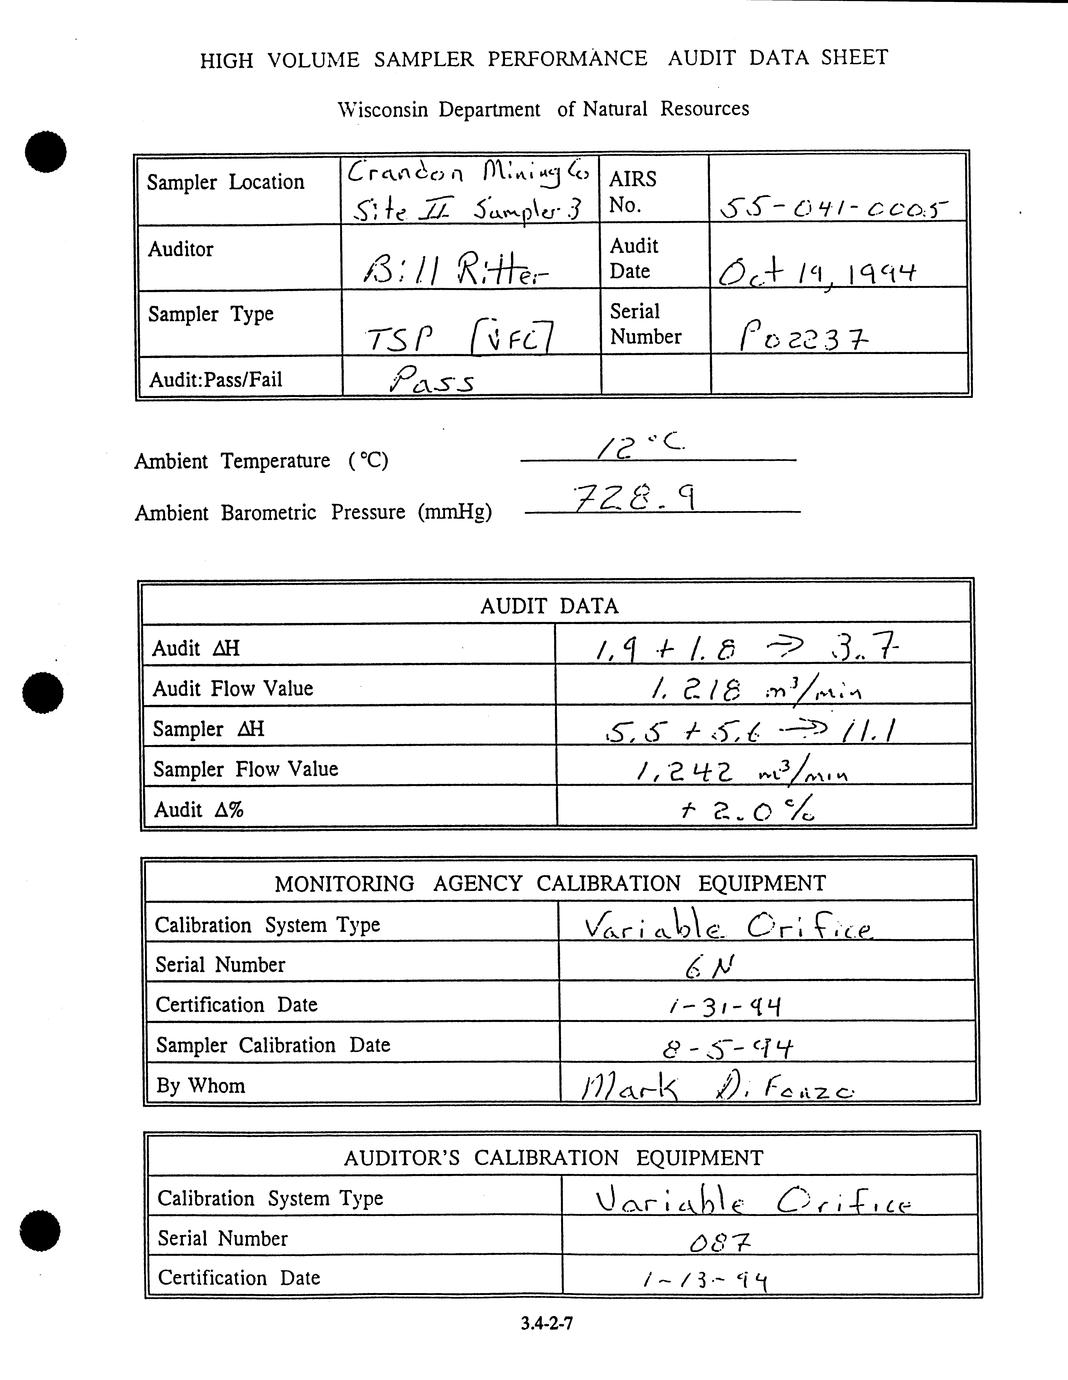 HIGH VOLUME SAMPLER PERFORMANCE AUDIT DATA SHEET
Wisconsin Department of Natural Resources
Sampler Location Crandon Mining Co Site II Sampler 3 AIRS No. 55-041-0005
Auditor Bill Ritter Audit Date Oct 19, 1994
Sampler Type TSP [VFC] Serial Number P02237
Audit:Pass/Fail Pass
Ambient Temperature (°C) 12°C
Ambient Barometric Pressure (mmHg) 728.9
AUDIT DATA
Audit ΔH 1.9 + 1.8 ⇒ 3.7
Audit Flow Value 1.218 m³/min
Sampler ΔH 5.5 + 5.6 ⇒ 11.1
Sampler Flow Value 1.242 m³/min
Audit Δ% + 2.0%
MONITORING AGENCY CALIBRATION EQUIPMENT
Calibration System Type Variable Orifice
Serial Number 6N
Certification Date 1-31-94
Sampler Calibration Date 8-5-94
By Whom Mark DiFonzo
AUDITOR'S CALIBRATION EQUIPMENT
Calibration System Type Variable Orifice
Serial Number 087
Certification Date 1-13-94
3.4-2-7